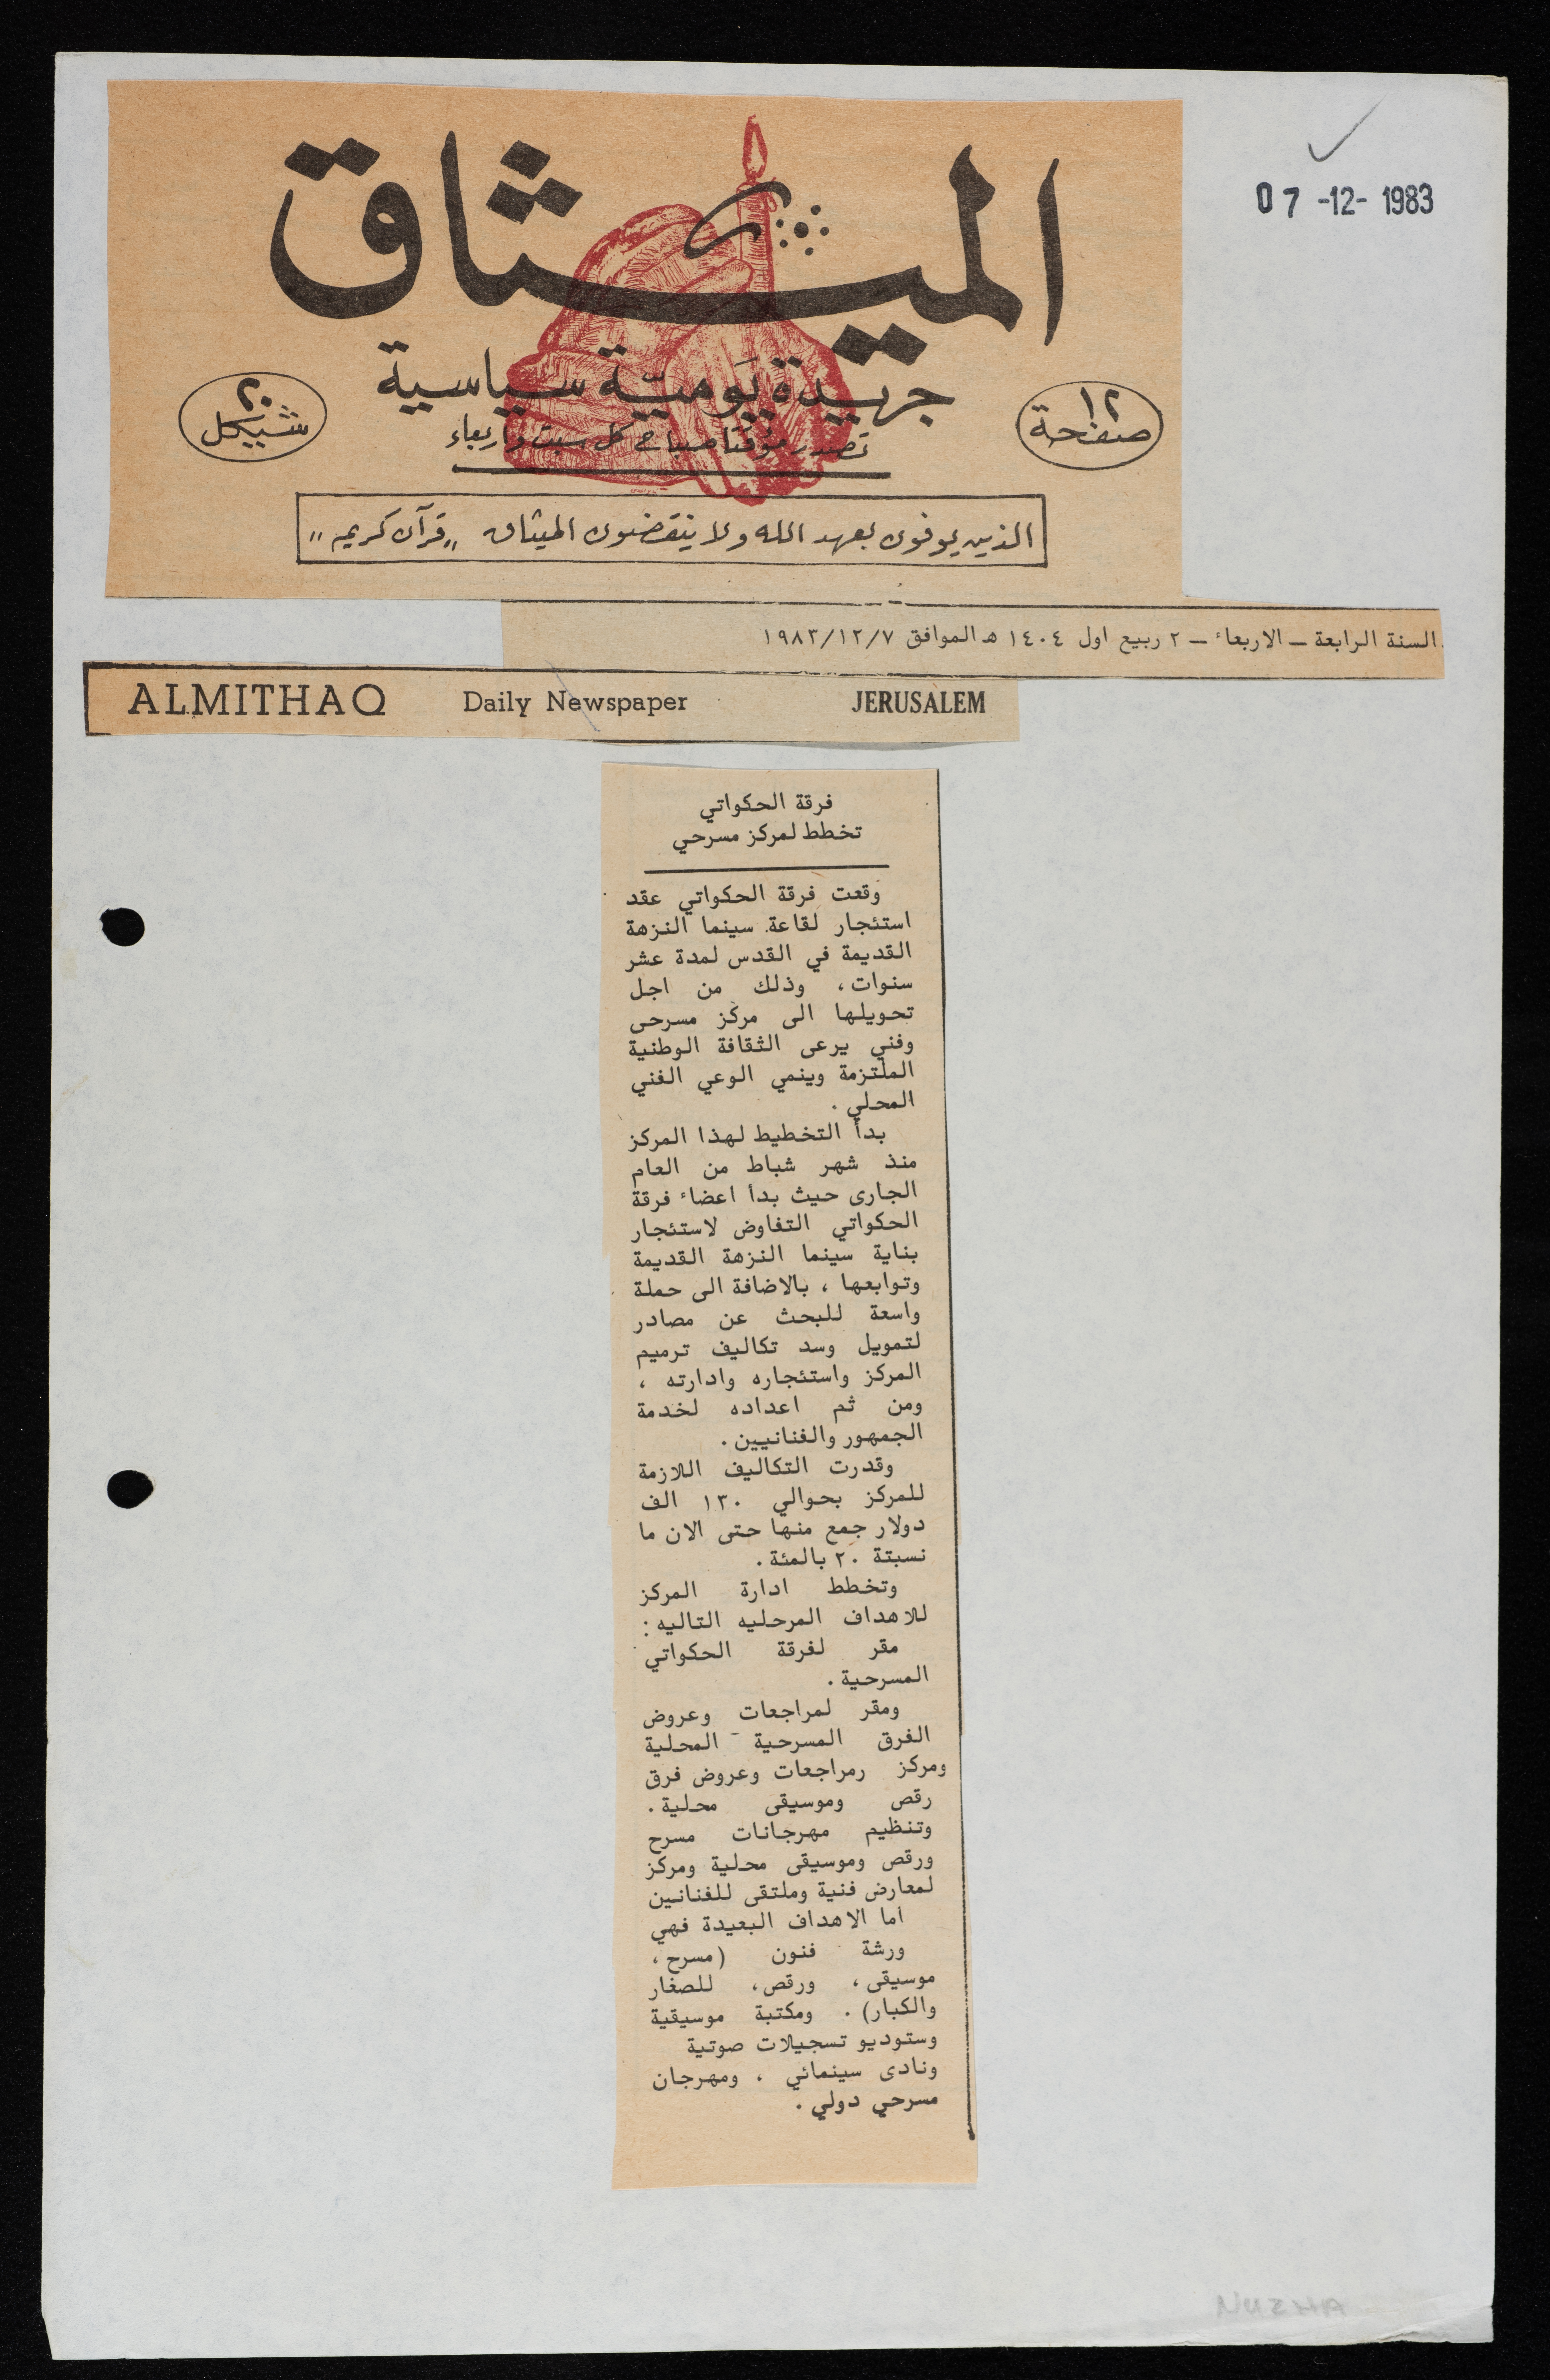 07-12-1983
الميثاق
جريدة يومية سياسية
تصدر مؤقتا صباح كل سبت واربعاء
١٢
صفحة
٢٠
شيكل
الذين يوفون بعهد الله ولا ينقضون الميثاق „قرآن كريم"
السنة الرابعة ــ الاربعاء ــ ٢ ربيع اول ١٤٠٤ هـ الموافق ١٩٨٣/١٢/٧
ALMITHAQ Daily Newspaper JERUSALEM
فرقة الحكواتي
تخطط لمركز مسرحي
وقعت فرقة الحكواتي عقد
استئجار لقاعة سينما النزهة
القديمة في القدس لمدة عشر
سنوات، وذلك من اجل
تحويلها الى مركز مسرحى
وفني يرعى الثقافة الوطنية
الملتزمة وينمي الوعي الفني
المحلي .
بدأ التخطيط لهذا المركز
منذ شهر شباط من العام
الجارى حيث بدأ اعضاء فرقة
الحكواتي التفاوض لاستئجار
بناية سينما النزهة القديمة
وتوابعها ، بالاضافة الى حملة
واسعة للبحث عن مصادر
لتمويل وسد تكاليف ترميم
المركز واستئجاره وادارته ،
ومن ثم اعداده لخدمة
الجمهور والفنانيين .
وقدرت التكاليف اللازمة
للمركز بحوالي ١٣٠ الف
دولار جمع منها حتى الان ما
نسبتة ٢٠ بالمئة .
وتخطط ادارة المركز
للاهداف المرحليه التاليه :
مقر لفرقة الحكواتي
المسرحية .
ومقر لمراجعات وعروض
الفرق المسرحية المحلية
ومركز رمراجعات وعروض فرق
رقص وموسيقى محلية .
وتنظيم مهرجانات مسرح
ورقص وموسيقى محلية ومركز
لمعارض فنية وملتقى للفنانين
اما الاهداف البعيدة فهي
ورشة فنون (مسرح ،
موسيقى ، ورقص ، للصغار
والكبار) . ومكتبة موسيقية
وستوديو تسجيلات صوتية
ونادى سينمائي ، ومهرجان
مسرحي دولي .
NUZHA